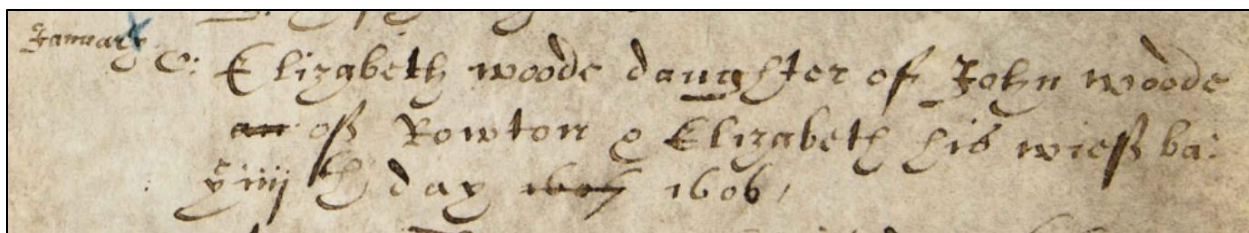 January C: Elizabeth woode daughter of John woode
an of Rowton & Elizabeth his wief ba:
xiiij th day 1607 1606,